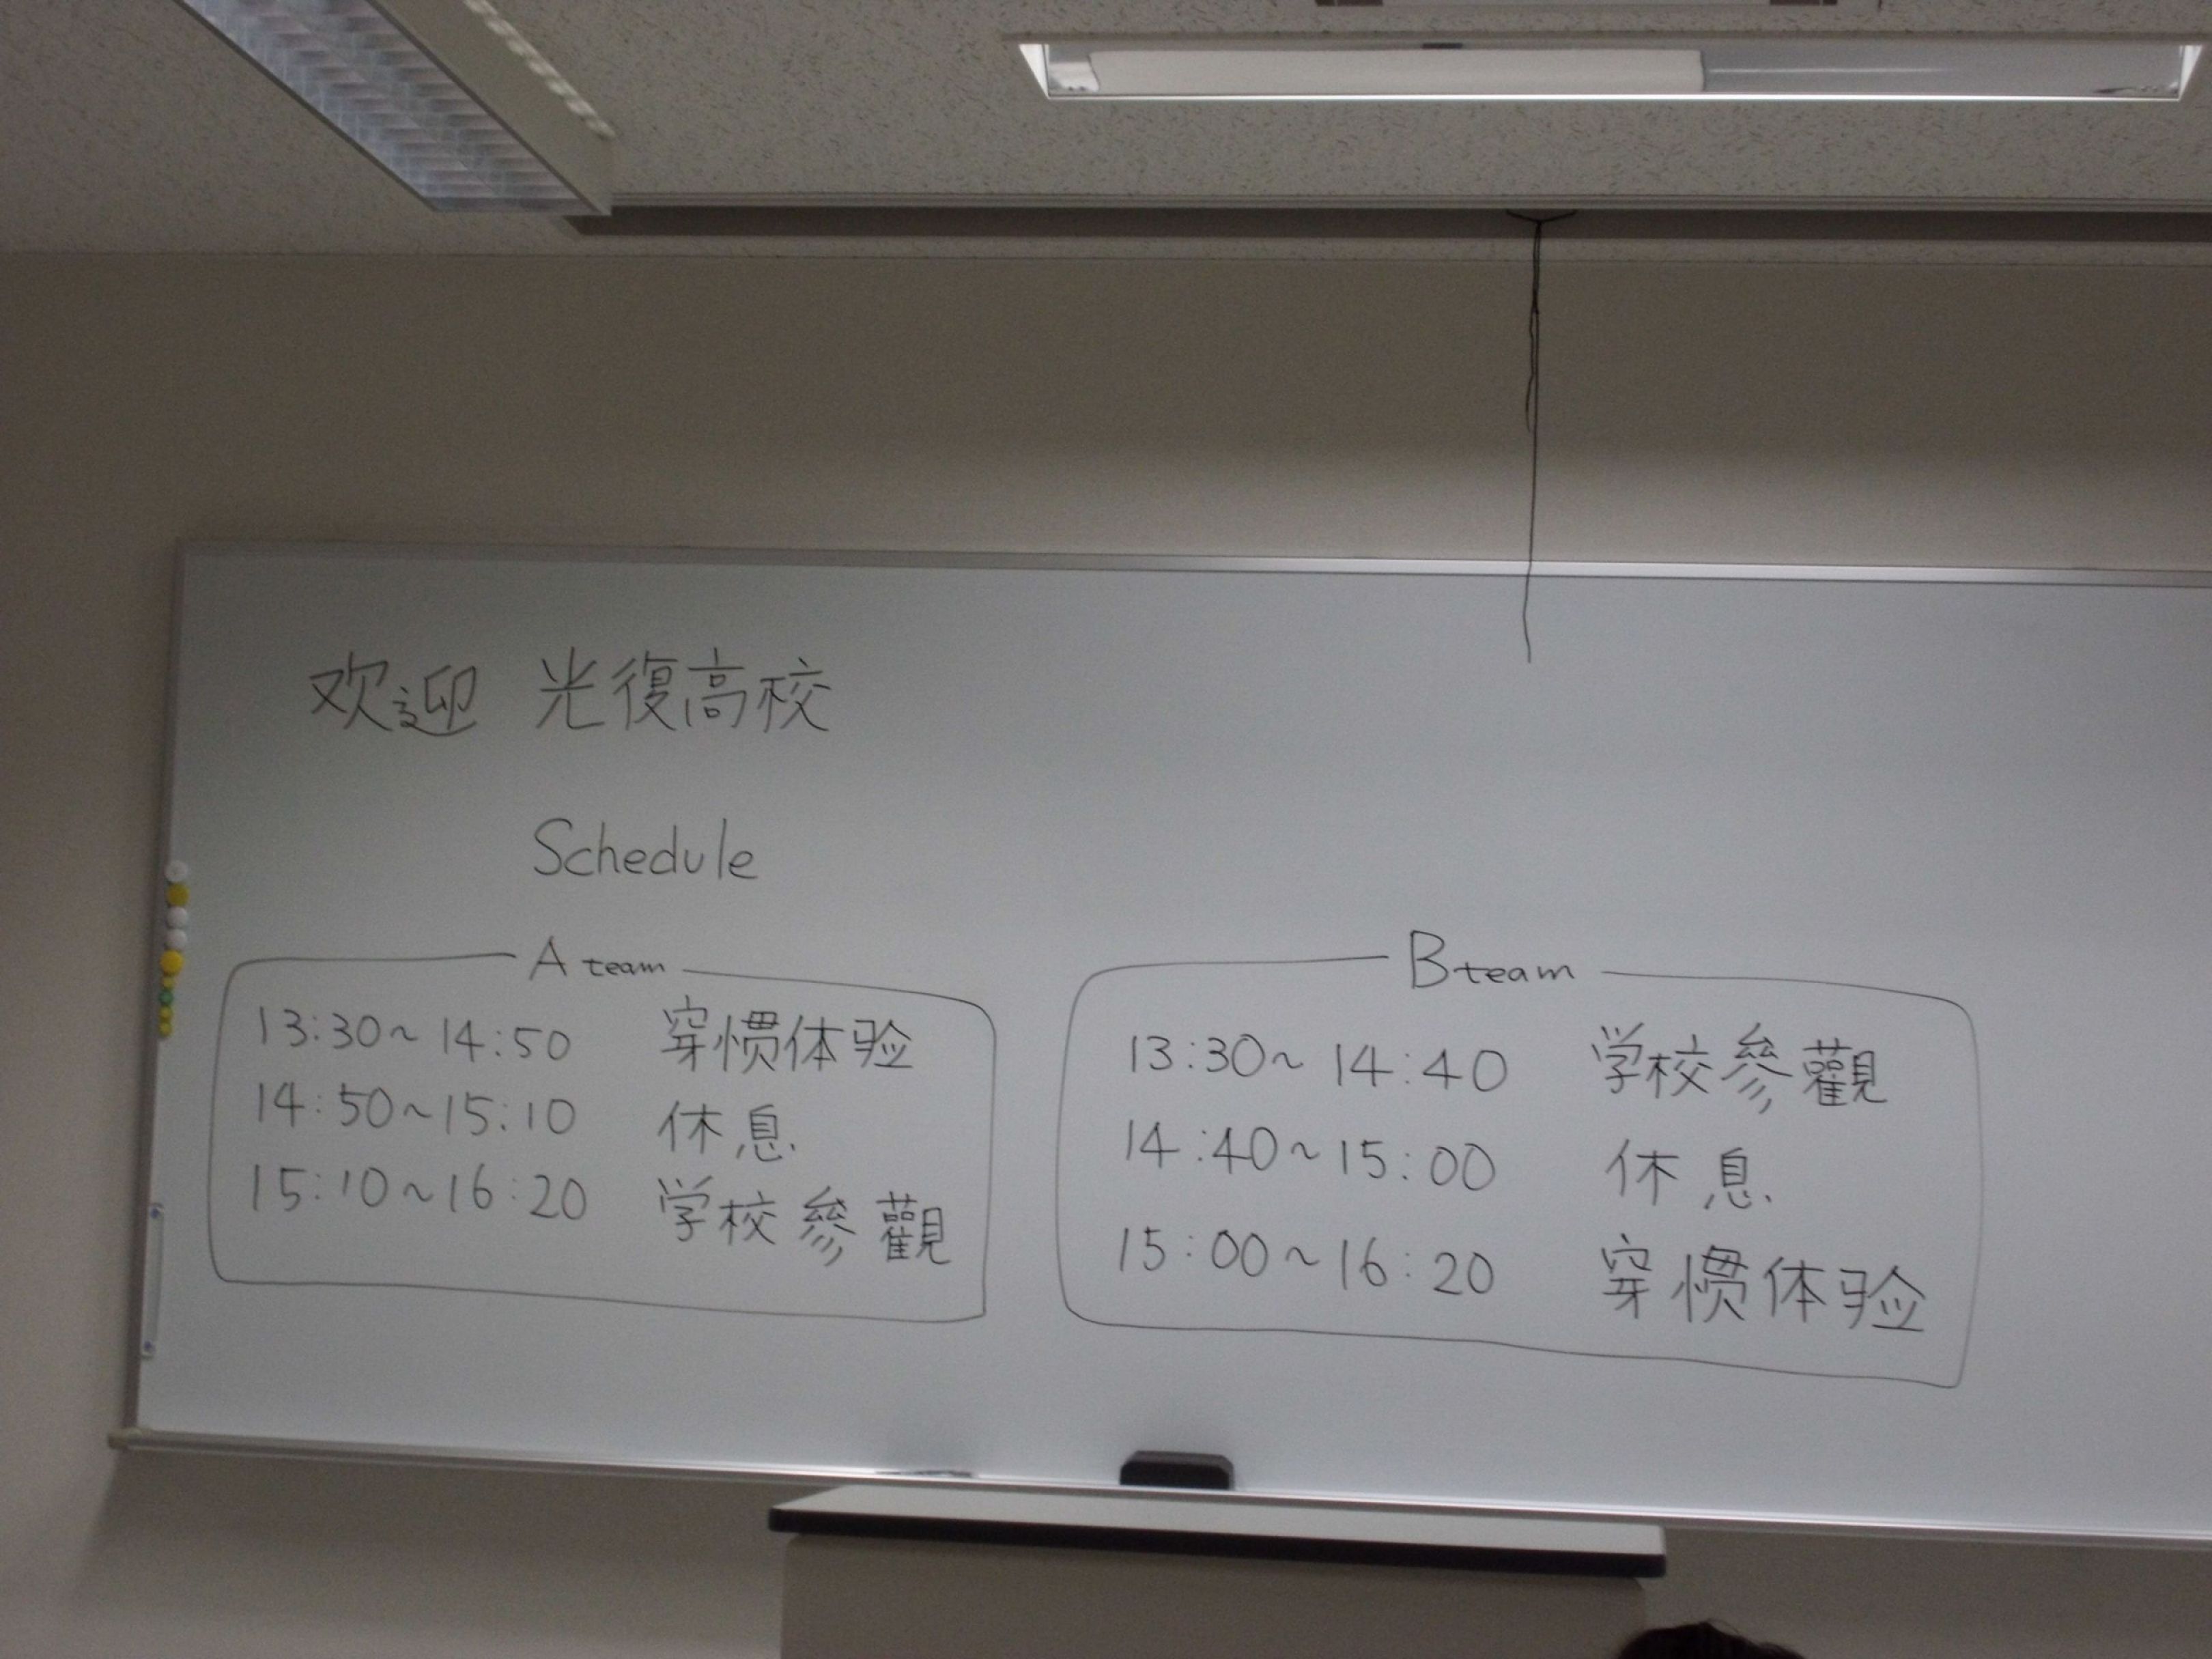 欢迎 光復高校
Schedule
A team
13:30~14:50 穿惯体验
14:50~15:10 休息
15:10~16:20 学校參觀
B team
13:30~14:40 学校參觀
14:40~15:00 休息
15:00~16:20 穿惯体验